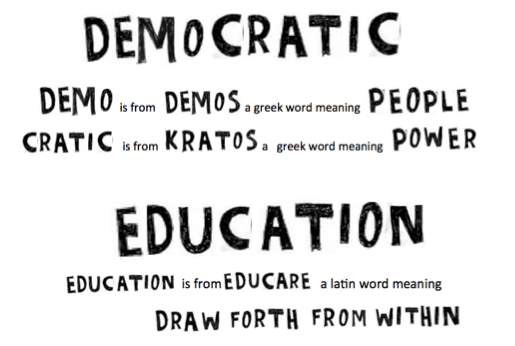 DEMOCRATIC
DEMO is from DEMOS a greek word meaning PEOPLE
CRATIC is from KRATOS a greek word meaning POWER
EDUCATION
EDUCATION is from EDUCARE a latin word meaning
DRAW FORTH FROM WITHIN